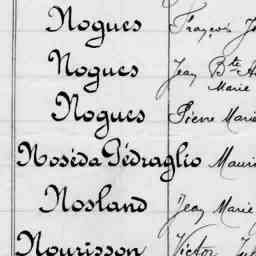 Nogues François
Nogues Jean Bte
Marie
Nogues Pierre Marie
Noséda Pédraglio Mauri
Nosland Jean Marie
Nourisson Victor